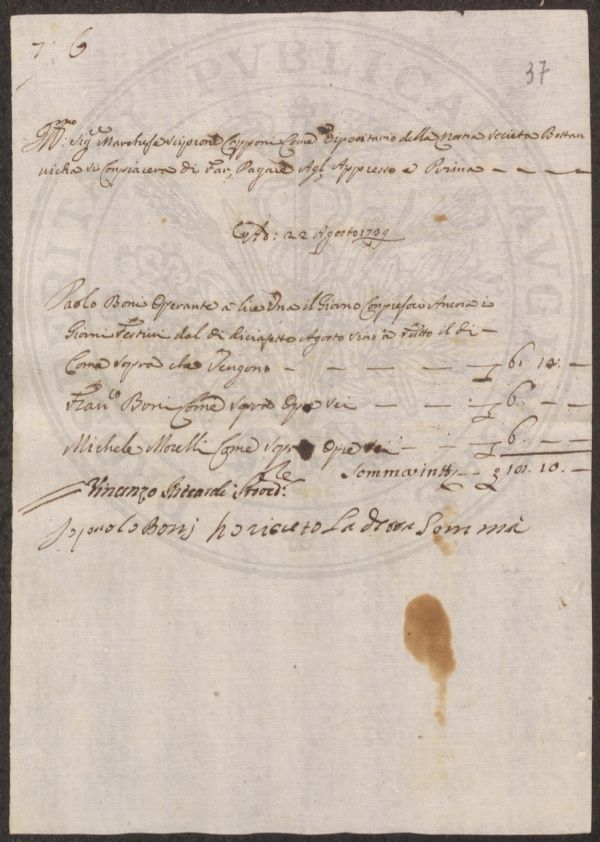 7: 6
37
Ill:mo Sig:re Marchese Scipione Capponi Come Dipositario della Nostra Società Bottan
nicha Si Conpiacera di Far Pagare Agl' Appresso e Prima — — —
Adi: 22 Agosto 1739
Paolo Boni Operante a lire Una il Giorno Conpresoci Ancora i
Giorni Festivi dal di diciasette Agosto Sino a Tutto il di —
Come Sopra che Vengono — — — — — 6. 10. —
Fran:co Boni Come Sopra Opre Sei — — — 6. — —
Michele Morelli Come Sopra Opre Sei — — 6. — —
Somma in tt:o — 10. —
Vincenzo Riccardi Provd:re
Io paolo Bonj ho riceuto La detta Somma